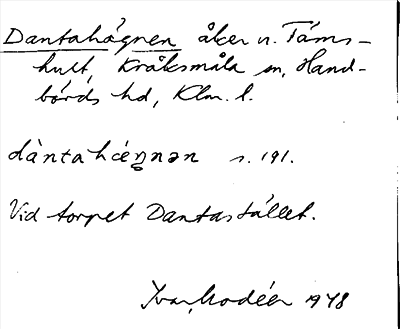 Dantahägnen åker n. Täms-
hult, Kråksmåla sn, Hand-
börds hd, Klm. l.
dàntahéŋnən s. 191.
Vid torpet Dantastället.
Ivar Modéer 1978